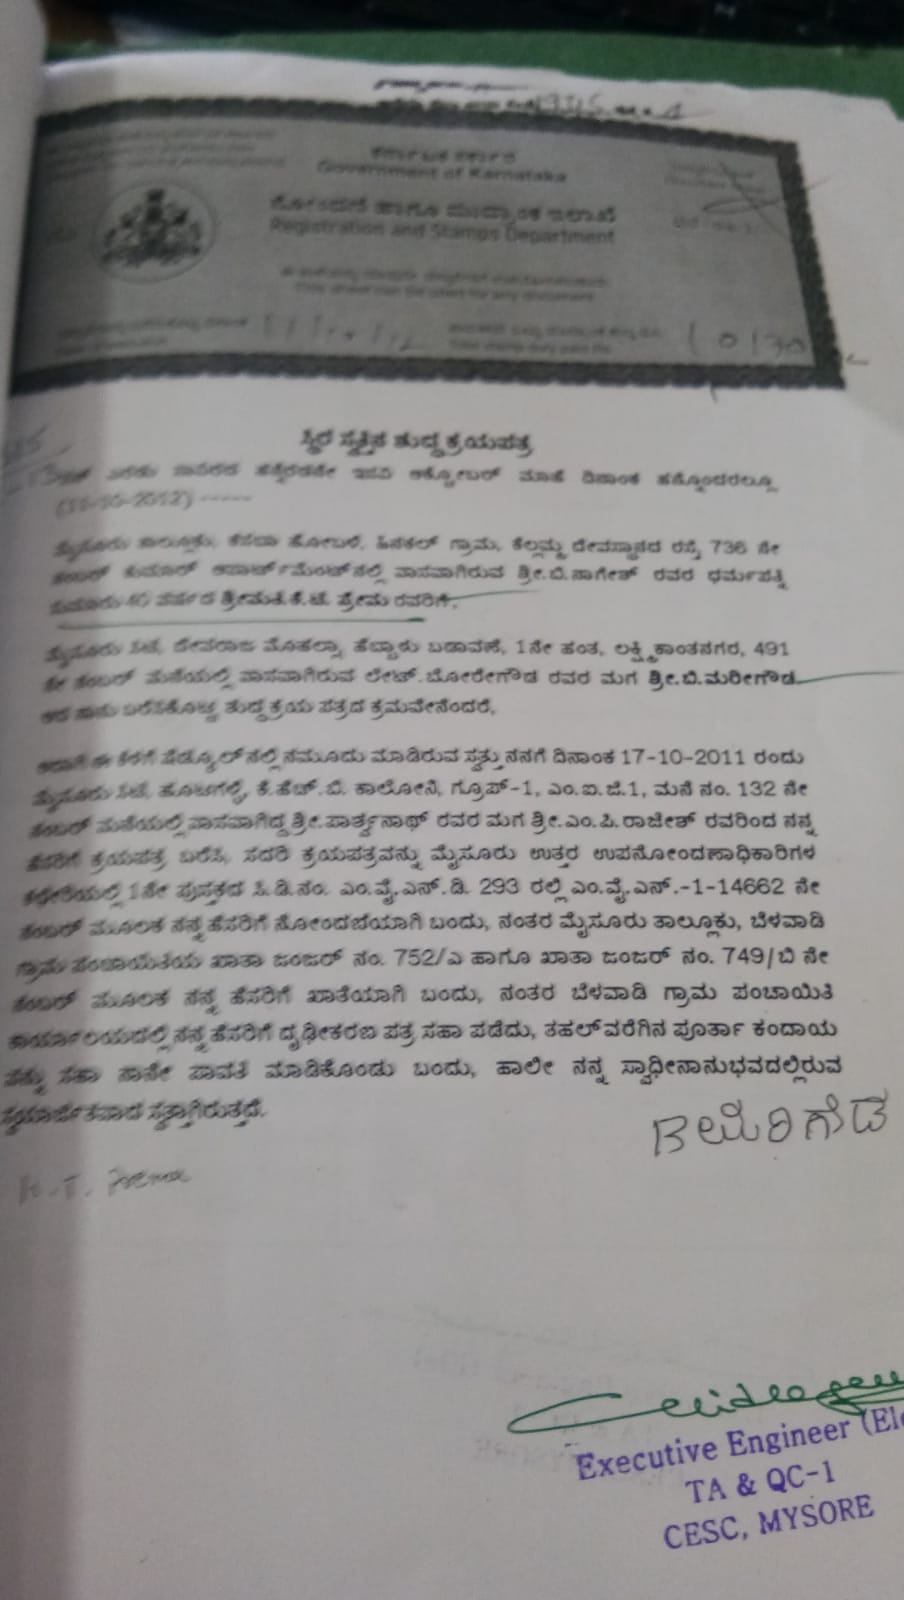 ಕರ್ನಾಟಕ ಸರ್ಕಾರ
Government of Karnataka
ನೋಂದಣಿ ಹಾಗೂ ಮುದ್ರಾಂಕ ಇಲಾಖೆ
Registration and Stamps Department
This sheet can be used for any document
ಸ್ಥಿರ ಸ್ವತ್ತಿನ ಶುದ್ಧ ಕ್ರಯಪತ್ರ
ಎರಡು ಸಾವಿರದ ಹನ್ನೆರಡನೇ ಇಸವಿ ಅಕ್ಟೋಬರ್ ಮಾಹೆ ದಿನಾಂಕ ಹನ್ನೊಂದರಲ್ಲೂ
(11-10-2012) -----
ಮೈಸೂರು ತಾಲ್ಲೂಕು, ಕಸಬಾ ಹೋಬಳಿ, ಹಿನಕಲ್ ಗ್ರಾಮ, ಕೆಲ್ಲಮ್ಮ ದೇವಸ್ಥಾನದ ರಸ್ತೆ 736 ನೇ
ನಂಬರ್ ಕುಮಾರ್ ಅಪಾರ್ಟ್‌ಮೆಂಟ್‌ನಲ್ಲಿ ವಾಸವಾಗಿರುವ ಶ್ರೀ.ಬಿ.ನಾಗೇಶ್ ರವರ ಧರ್ಮಪತ್ನಿ
ಸುಮಾರು 40 ವರ್ಷದ ಶ್ರೀಮತಿ.ಕೆ.ಟಿ. ಪ್ರೇಮ ರವರಿಗೆ,
ಮೈಸೂರು ಸಿಟಿ, ದೇವರಾಜ ಮೊಹಲ್ಲಾ, ಹೆಬ್ಬಾಳು ಬಡಾವಣೆ, 1ನೇ ಹಂತ, ಲಕ್ಷ್ಮಿಕಾಂತನಗರ, 491
ನೇ ನಂಬರ್ ಮನೆಯಲ್ಲಿ ವಾಸವಾಗಿರುವ ಲೇಟ್.ಬೋರೇಗೌಡ ರವರ ಮಗ ಶ್ರೀ.ಬಿ.ಮರೀಗೌಡ
ಆದ ನಾನು ಬರೆಸಿಕೊಟ್ಟ ಶುದ್ಧ ಕ್ರಯ ಪತ್ರದ ಕ್ರಮವೇನೆಂದರೆ,
ಅದಾಗಿ ಈ ಕೆಳಗೆ ಷೆಡ್ಯೂಲ್‌ನಲ್ಲಿ ನಮೂದು ಮಾಡಿರುವ ಸ್ವತ್ತು ನನಗೆ ದಿನಾಂಕ 17-10-2011 ರಂದು
ಮೈಸೂರು ಸಿಟಿ, ಹೂಟಗಳ್ಳಿ, ಕೆ.ಹೆಚ್.ಬಿ. ಕಾಲೋನಿ, ಗ್ರೂಪ್-1, ಎಂ.ಐ.ಜಿ.1, ಮನೆ ನಂ. 132 ನೇ
ನಂಬರ್ ಮನೆಯಲ್ಲಿ ವಾಸವಾಗಿದ್ದ ಶ್ರೀ.ಪಾರ್ಶ್ವನಾಥ್ ರವರ ಮಗ ಶ್ರೀ.ಎಂ.ಪಿ.ರಾಜೇಶ್ ರವರಿಂದ ನನ್ನ
ಹೆಸರಿಗೆ ಕ್ರಯಪತ್ರ ಬರೆಸಿ, ಸದರಿ ಕ್ರಯಪತ್ರವನ್ನು ಮೈಸೂರು ಉತ್ತರ ಉಪನೋಂದಣಾಧಿಕಾರಿಗಳ
ಕಛೇರಿಯಲ್ಲಿ 1ನೇ ಪುಸ್ತಕದ ಸಿ.ಡಿ.ನಂ. ಎಂ.ವೈ.ಎನ್.ಡಿ. 293 ರಲ್ಲಿ ಎಂ.ವೈ.ಎನ್.-1-14662 ನೇ
ನಂಬರ್ ಮೂಲಕ ನನ್ನ ಹೆಸರಿಗೆ ನೋಂದಣಿಯಾಗಿ ಬಂದು, ನಂತರ ಮೈಸೂರು ತಾಲ್ಲೂಕು, ಬೆಳವಾಡಿ
ಗ್ರಾಮ ಪಂಚಾಯಿತಿಯ ಖಾತಾ ಜಂಜರ್ ನಂ. 752/ಎ ಹಾಗೂ ಖಾತಾ ಜಂಜರ್ ನಂ. 749/ಬಿ ನೇ
ನಂಬರ್ ಮೂಲಕ ನನ್ನ ಹೆಸರಿಗೆ ಖಾತೆಯಾಗಿ ಬಂದು, ನಂತರ ಬೆಳವಾಡಿ ಗ್ರಾಮ ಪಂಚಾಯಿತಿ
ಕಾರ್ಯಾಲಯದಲ್ಲಿ ನನ್ನ ಹೆಸರಿಗೆ ದೃಢೀಕರಣ ಪತ್ರ ಸಹಾ ಪಡೆದು, ತಹಲ್‌ವರೆಗಿನ ಪೂರ್ತಾ ಕಂದಾಯ
ವನ್ನು ಸಹಾ ನಾನೇ ಪಾವತಿ ಮಾಡಿಕೊಂಡು ಬಂದು, ಹಾಲೀ ನನ್ನ ಸ್ವಾಧೀನಾನುಭವದಲ್ಲಿರುವ
ಸ್ವಯಾರ್ಜಿತವಾದ ಸ್ವತ್ತಾಗಿರುತ್ತದೆ.
B ಮರಿಗೌಡ
K.T. Prema
Executive Engineer (Ele
TA & QC-1
CESC, MYSORE